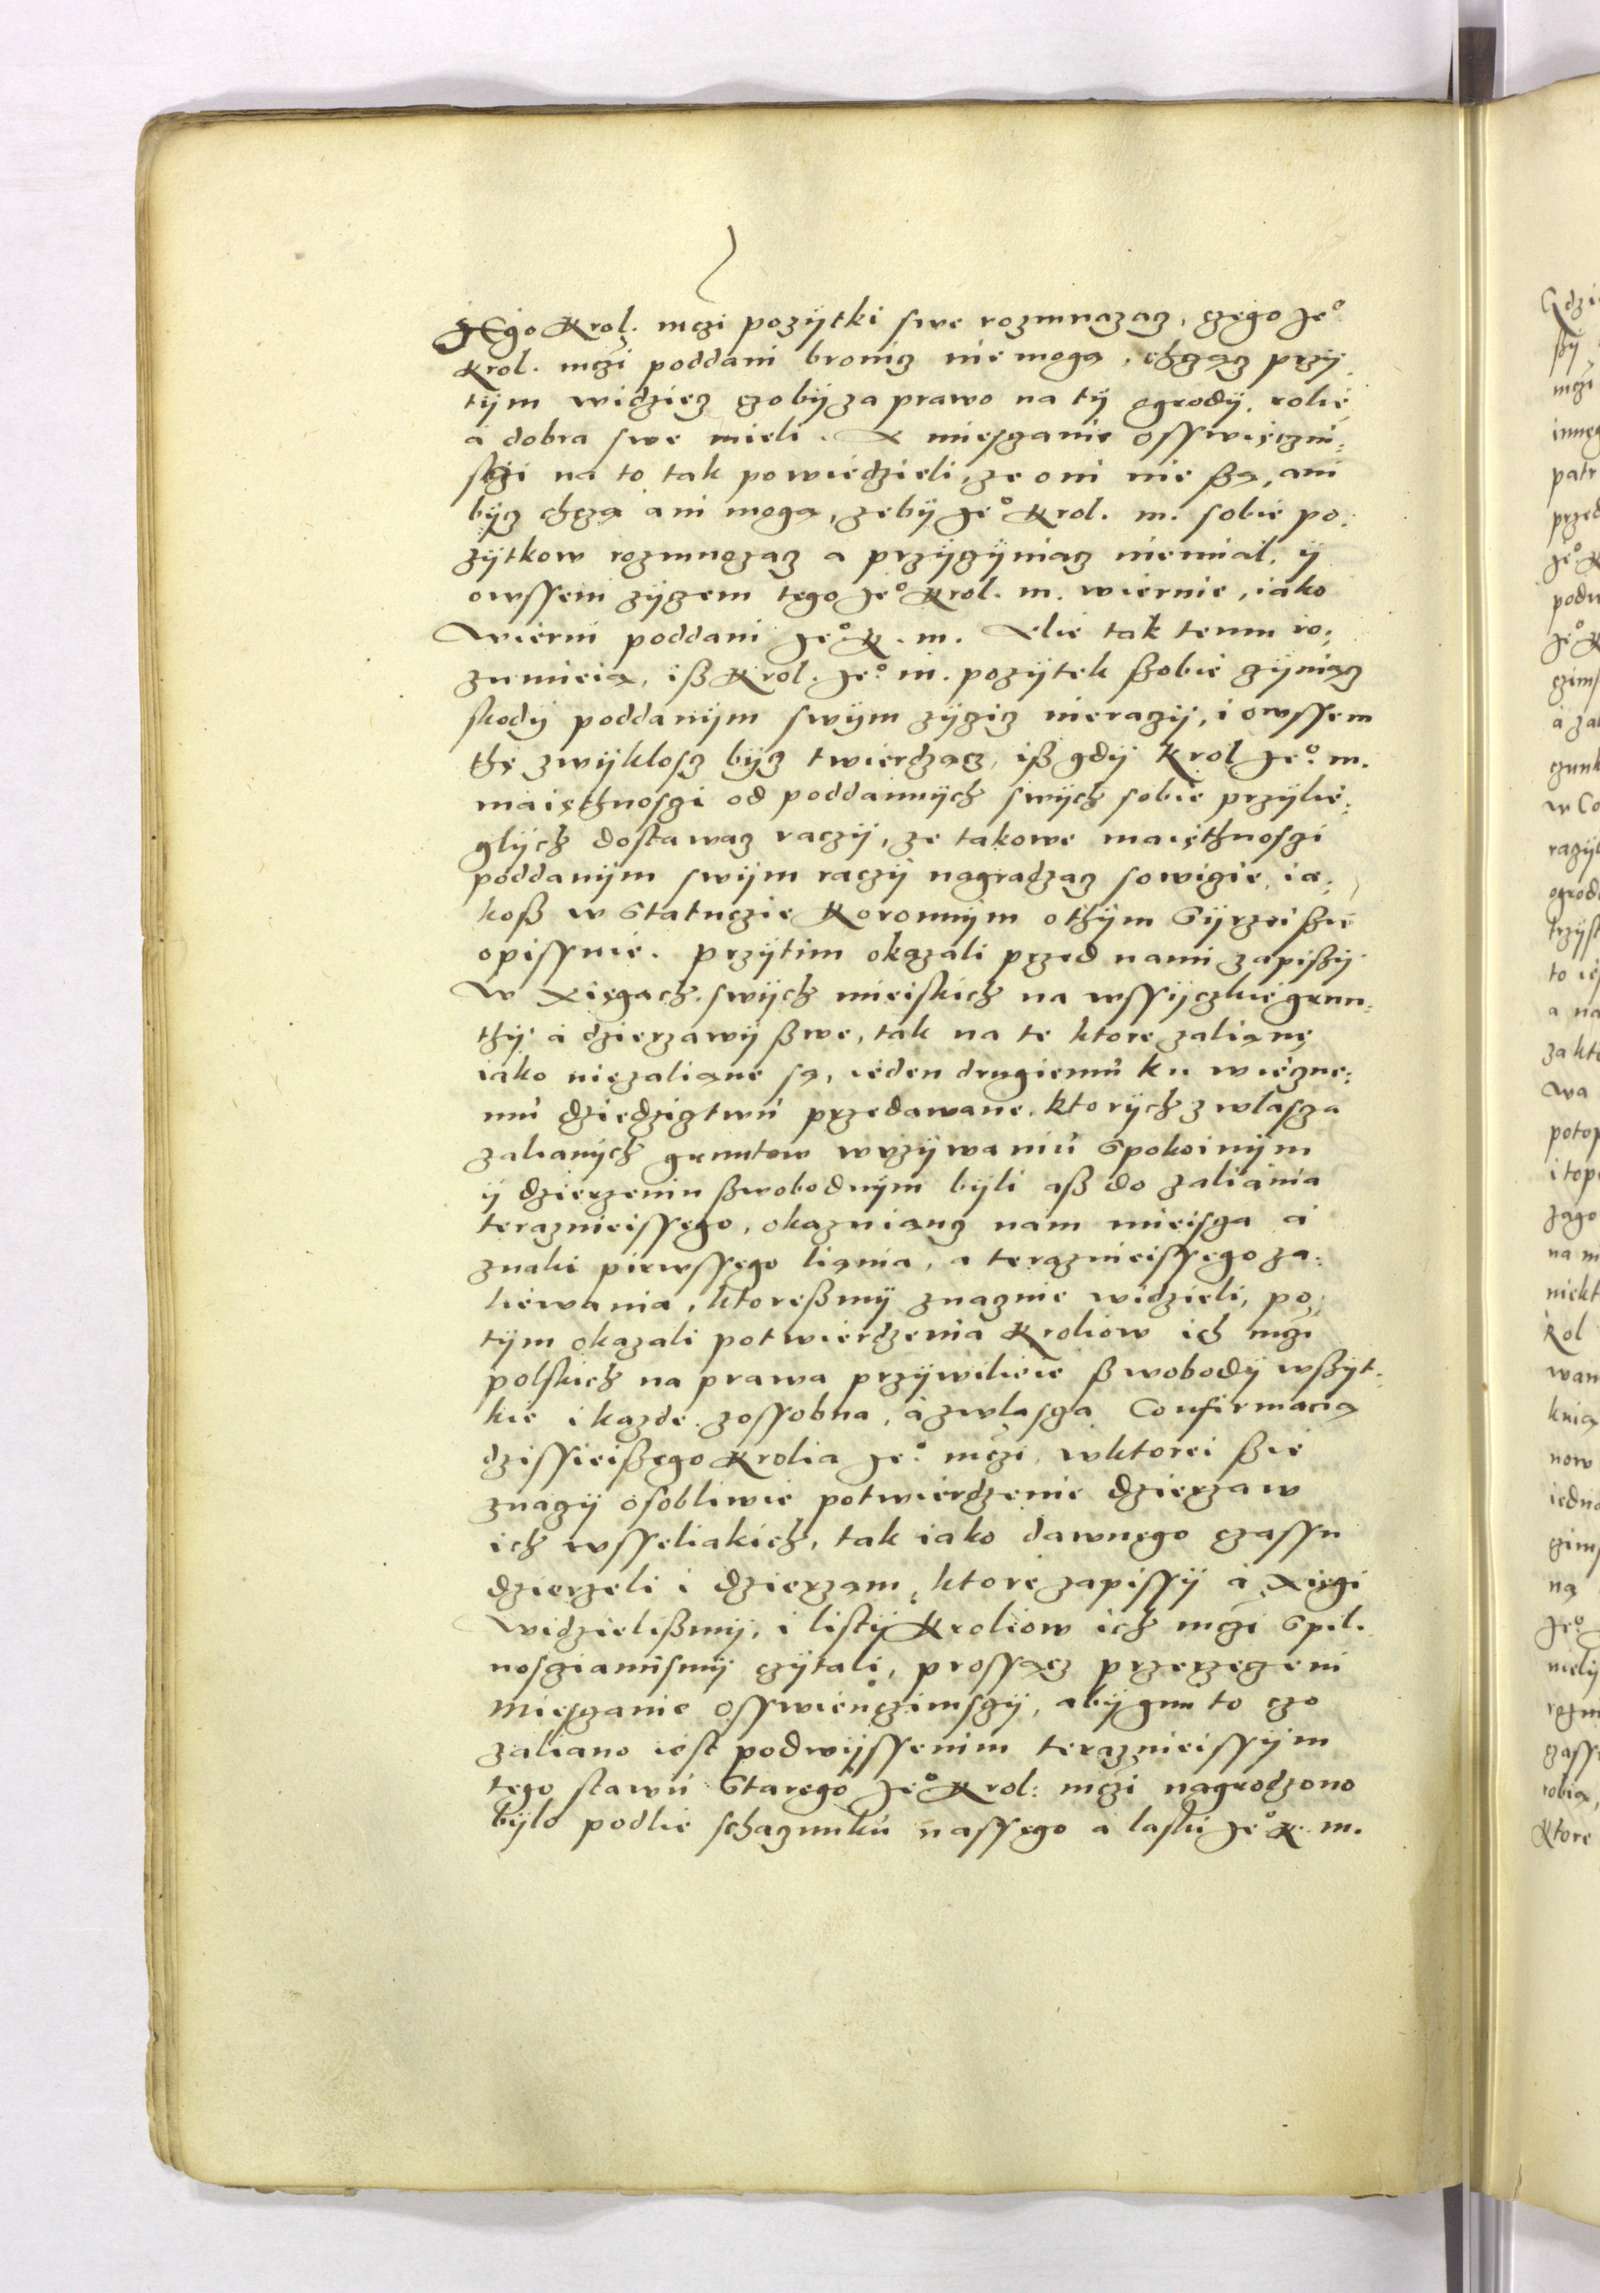 JEgo Krol. mczi pozÿtki swe rozmnazacz, czego Jeº
Krol. mczi poddani bronicz nie mogą, chcząz przÿ
tÿm widziecz czobÿ za prawo na tÿ ogrodÿ, rolie
a dobra swe mieli. A miesczanie Osswięczÿm:
sczi na to tak powiedzieli, ze oni nie są, ani
bÿcz chczą ani mogą, zebÿ Jeº Krol. m. sobie po:
zÿtkow rozmnozacz a przÿczÿniacz niemial, ÿ
owssem zÿczem tego Jeº Krol. m. wiernie, iako
wierni poddani Jeº K. m. Alie tak temu ro:
zumieią, iß Krol. Jeº m. pozÿtek ßobie czÿniącz
skodÿ poddanÿm swÿm zÿczicz nieraczÿ, i owssem
thę zwÿklosz bÿcz twierdząc, iß gdÿ Krol Jeº m.
maięthnosczi od poddannÿch swÿch sobie przÿlie:
glÿch dostawacz raczÿ, ze takowe maięthnosczi
poddanÿm swÿm raczÿ nagradzacz sowiczie, ia:
koß w Statuczie Koronnÿm othÿm Sÿrzei ßie
opissuie. Przÿtim okazali przed nami zapißÿ
w Xięgach swÿch mieiskich na wssÿczkie grun:
thÿ a dzierzawÿ ßwe, tak na te ktore zaliane
iako niezaliane są, ieden drugiemu ku wieczne:
mu dziedziztwu przedawane, ktorÿch zwlascza
zalianÿch gruntow wuzÿwaniu Spokoinÿm
ÿ dzierzeniu ßwobodnÿm bÿli aß do zaliania
teraznieissego, okazuiancz nam mieisca a
znaki pierwssego liania, a teraznieissego za:
liewania, ktoreßmÿ znacznie widzieli, po:
tÿm okazali potwierdzenia Kroliow ich mczi
polskich na prawa przÿwilieie ßwobodÿ wßÿt:
kie i kazde zossobna, a zwlascza Confirmacią
dzissieißego Krolia Jeº mczi, wktorei ßie
znaczÿ osobliwie potwierdzenie dzierzaw
ich wsseliakich, tak iako dawnego czassu
dzierzeli i dzierzam, ktore zapissÿ a Xięgi
widzielißmÿ, i listÿ Kroliow ich mczi Spil:
nosciamismÿ czÿtali, prossącz przerzeczeni
Miesczanie Osswienczimsczÿ, abÿ gim to czo
zaliano iest podwÿssenim teraznieissÿm
tego stawu Starego Jeº Krol: mczi nagrodzono
bÿlo podlie schaczunku nassego a laski Jeº K. m.